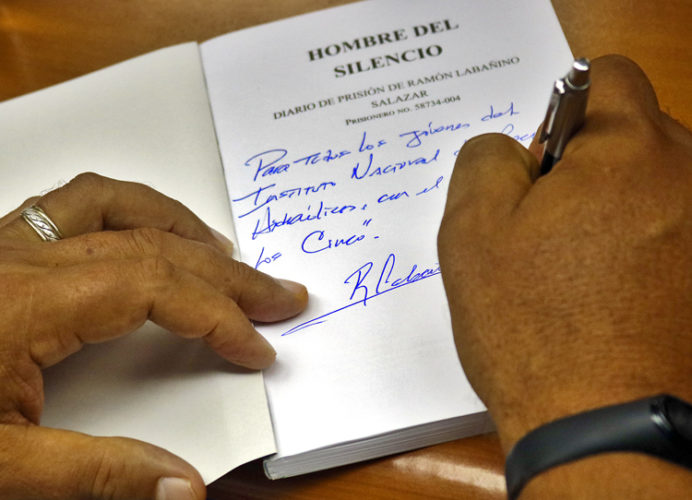 HOMBRE DEL
SILENCIO
DIARIO DE PRISIÓN DE RAMÓN LABAÑINO
SALAZAR
PRISIONERO NO. 58734-004
Para todos los jóvenes del
Instituto Nacional
Hidraúlicos, con el
los Cinco".